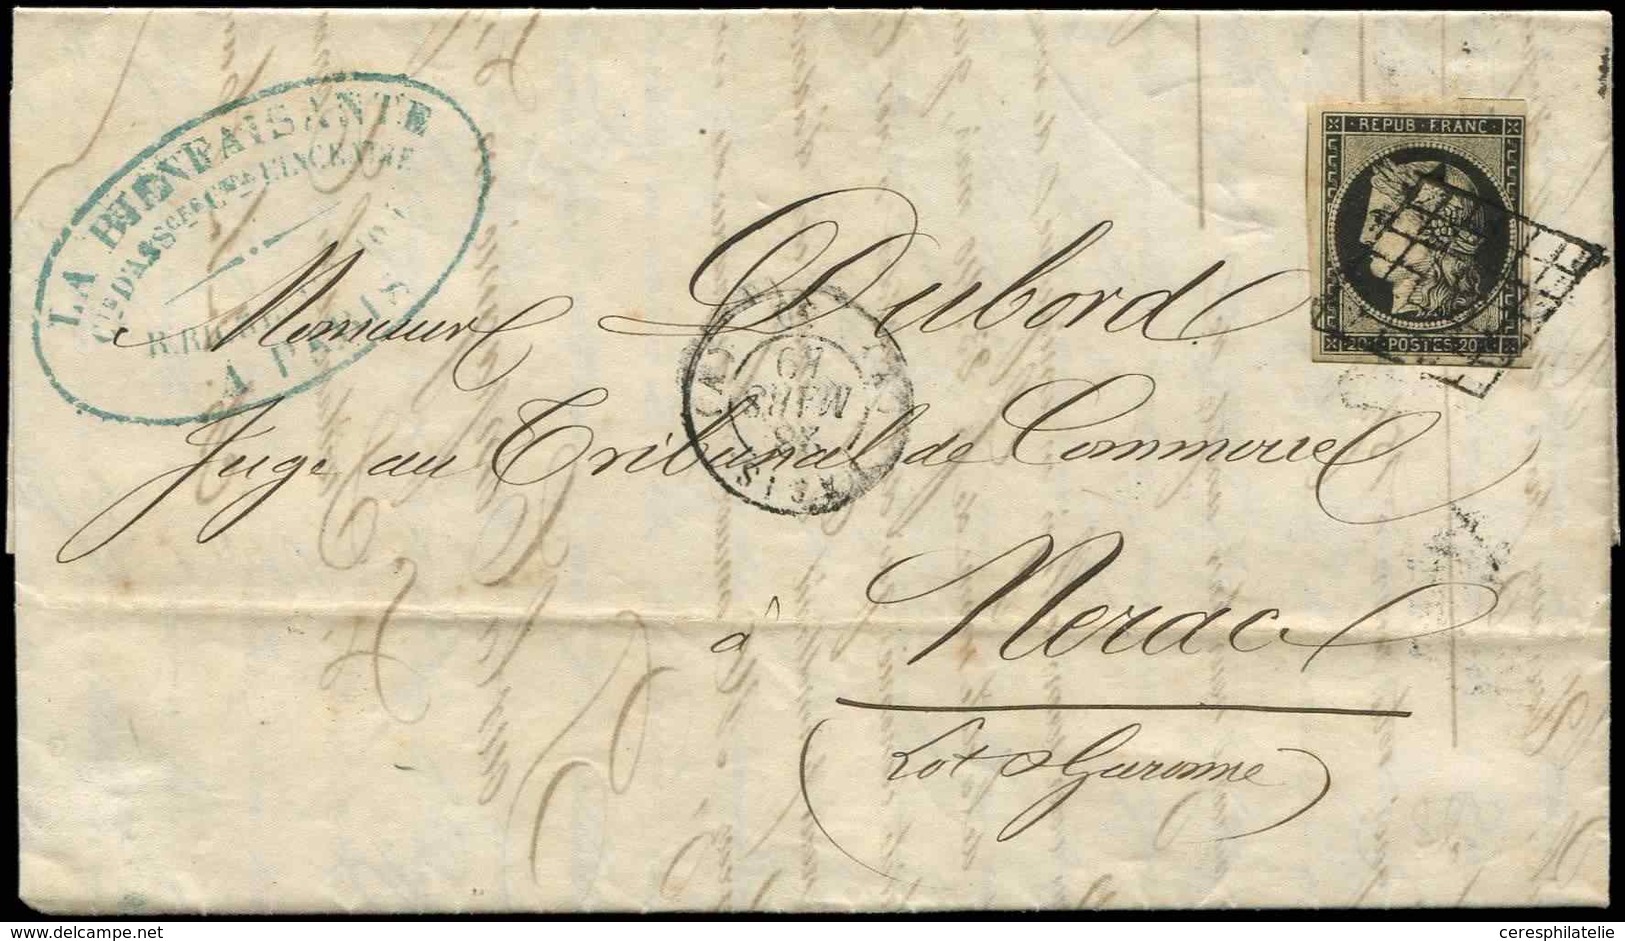 LA BIENFAISANTE
Cie D'ASSces Ctre L'INCENDIE
A PARIS
REPUB FRANC
20 POSTES 20
MARS
Monsieur Dubord
Juge au Tribunal de Commerce
à Nerac
(Lot & Garonne)
www.delcampe.net
ceresphilatelie